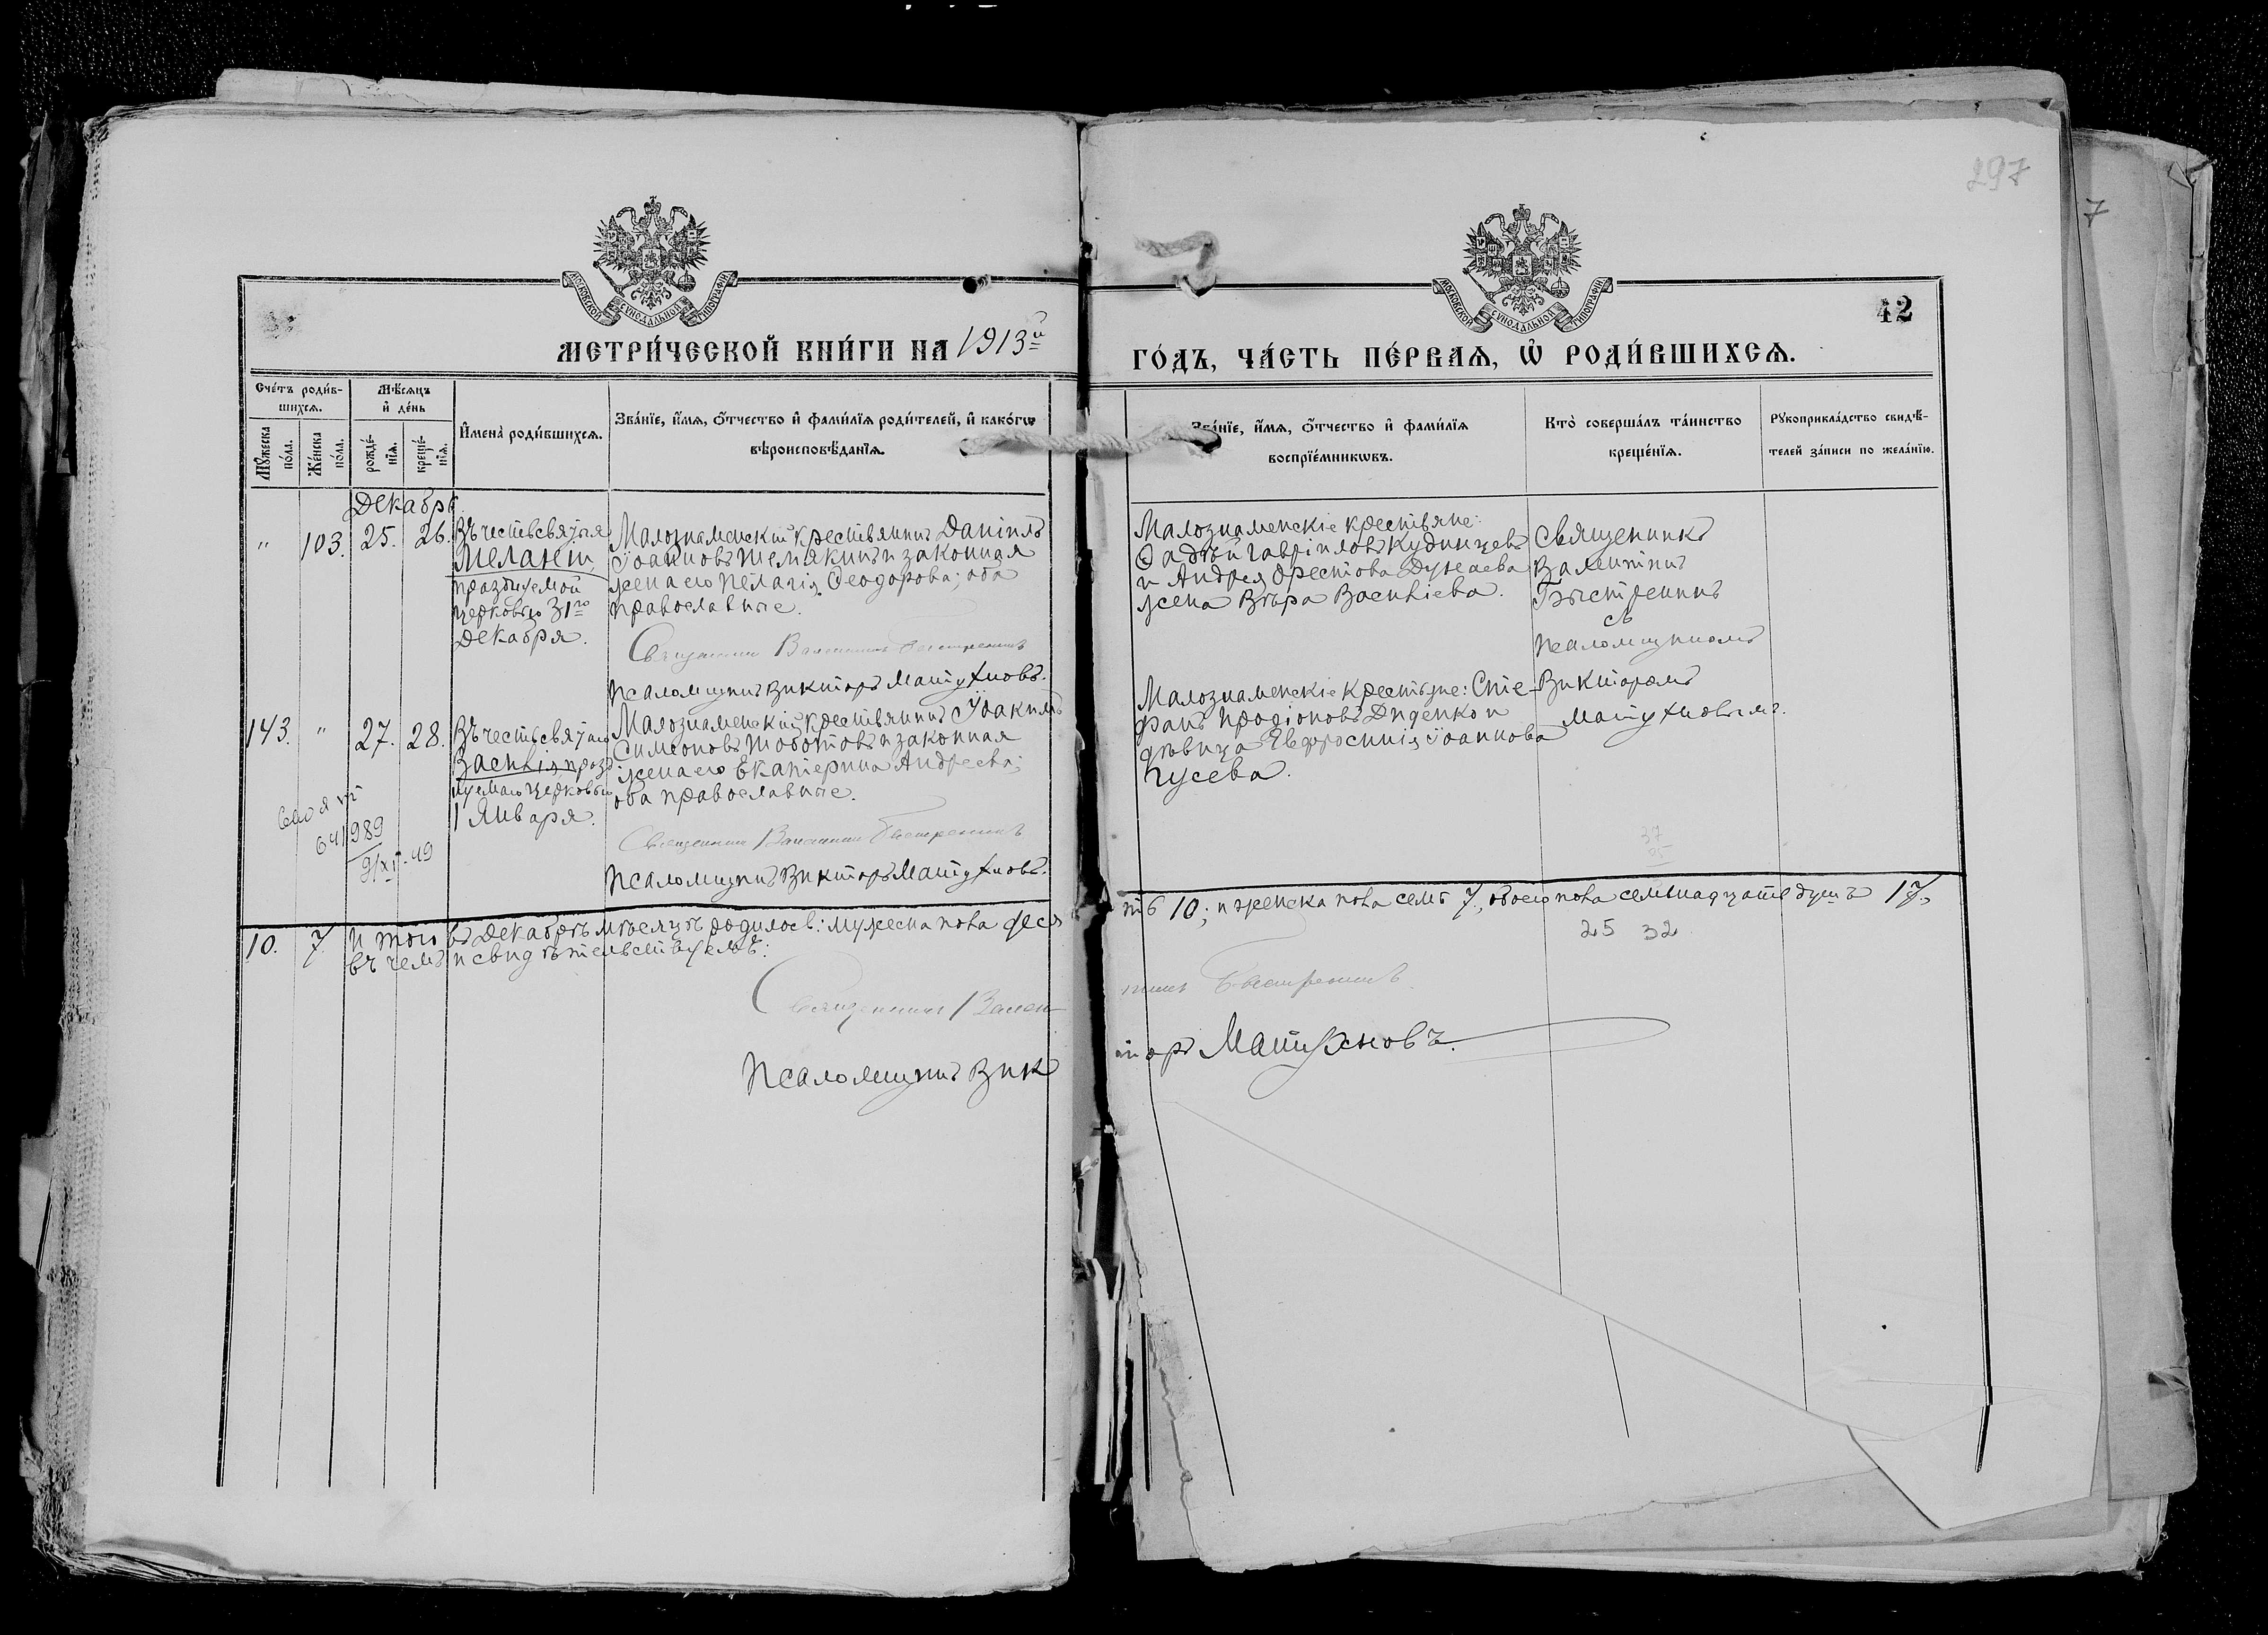 297
7
МОСКОВСКОЙ СѴНОДАЛЬНОЙ ТИПОГРАФІИ
МОСКОВСКОЙ СѴНОДАЛЬНОЙ ТИПОГРАФІИ
42
МЕТРИ́ЧЕСКОЙ КНИ́ГИ НА 1913й
ГО́ДЪ, ЧА́СТЬ ПЕ́РВАЯ, Ѡ҆ РОДИ́ВШИХСЯ.
Сче́тъ роди́в-
шихся.
Мꙋ́жеска по́ла.
Же́нска по́ла.
Мѣ́сяцъ
и҆ де́нь
рожде́-
нїя.
креще́-
нїя.
И҆мена̀ роди́вшихся.
Зва́нїе, и҆́мя, ѻ҆́тчество и҆ фами́лїя роди́телей, и҆ како́гѡ
вѣроисповѣ́данїя.
Зва́нїе, и҆́мя, ѻ҆́тчество и҆ фами́лїя
воспрїе́мникѡвъ.
Кто̀ соверша́лъ та́инство
креще́нїя.
Рꙋкоприкла́дство свидѣ́-
телей за́писи по жела́нїю.
Декабрь
" 103. 25. 26.
Въ честь святыя
Меланіи,
празднуемой
церковью 31го
декабря.
Малознаменскій крестьянинъ Даніилъ
Іоанновъ Шемякинъ и законная
жена его Пелагія Ѳеодорова; оба
православные.
Священникъ Валентинъ Быстренинъ
Псаломщикъ Викторъ Матухновъ.
Малознаменскіе крестьяне:
Ѳадѣй Гавріиловъ Кудинцевъ
и Андрея Орестова Дунаева
жена Вѣра Васильева.
Священникъ
Валентинъ
Быстренинъ
съ
псаломщикомъ
Викторомъ
Матухновымъ.
143. " 27. 28.
Въ честь святаго
Василія, празд
нуемаго церковью
1 Января.
Малознаменскій крестьянинъ Іоакимъ
Симеоновъ Тоботовъ и законная
жена его Екатерина Андреева;
оба православные.
Священникъ Валентинъ Быстренинъ
Псаломщикъ Викторъ Матухновъ.
Малознаменскіе крестьяне: Сте-
фанъ Иродіоновъ Диденко и
дѣвица Евфросинія Іоаннова
Гусева.
641989
9/XI-49
37
10. 7. Итого въ Декабрѣ мѣсяцѣ родилось: мужеска пола деся
ть 10; и женска пола семь 7, обоего пола семьнадцать душъ 17,
въ чемъ и свидѣтельствуемъ:
25 32
Священникъ Вален
тинъ Быстренинъ
Псаломщикъ Вик
торъ Матухновъ.